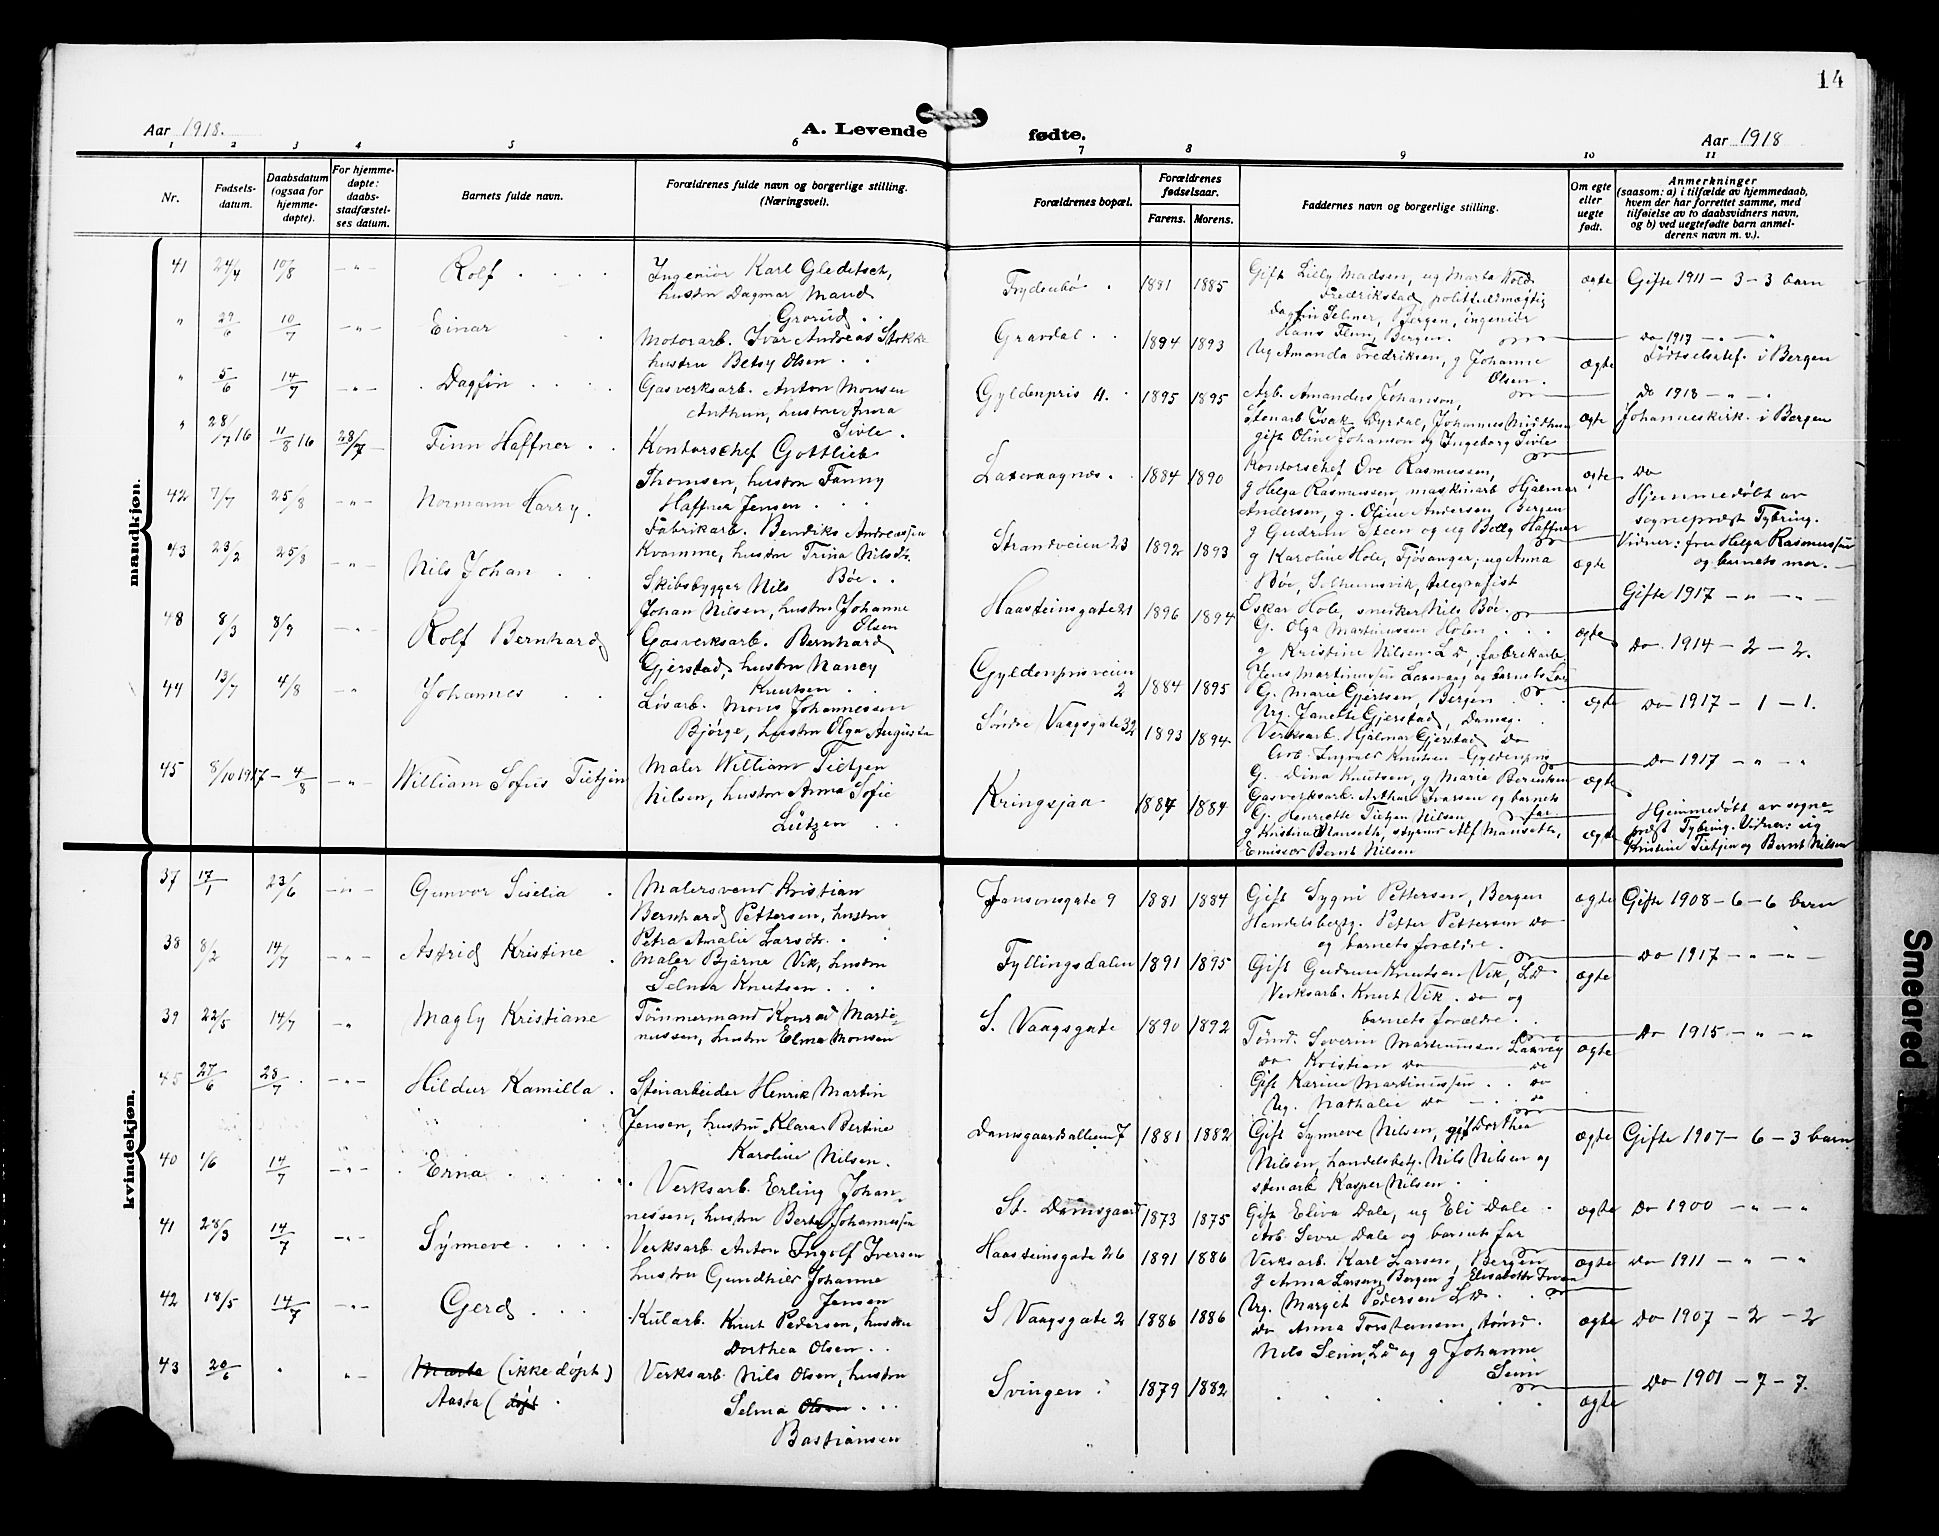 14
Aar 1918.
A. Levende
fødte.
Aar 1918
1 2 3 4 5 6 7 8 9 10 11
Nr.
Fødsels-
datum.
Daabsdatum
(ogsaa for
hjemme-
døpte).
For hjemme-
døpte:
daabs-
stadfæstel-
ses datum.
Barnets fulde navn.
Forældrenes fulde navn og borgerlige stilling.
(Næringsvei).
Forældrenes bopæl.
Forældrenes
fødselsaar.
Farens. Morens.
Faddernes navn og borgerlige stilling.
Om egte
eller
uegte
født.
Anmerkninger
(saasom: a) i tilfælde av hjemmedaab,
hvem der har forrettet samme, med
tilføielse av to daabsvidners navn,
og b) ved uegtefødte barn anmel-
derens navn m. v.).
mandkjøn.
41 24/4 10/8 —"— Rolf
Ingeniør Karl Gleditsch,
hustru Dagmar Maud
Grorud
Frydenbø 1881 1885
Gift Lilly Madsen, ug Marta Wold
Fredrikstad politifuldmægtig
Dagfin Selmer, Bergen, ingeniør
Hans Flem, Bergen
ægte Gifte 1911 – 3 – 3 barn
" 29/6 10/7 —"— Einar
Motorarb. Ivar Andreas Stokke
hustru Betsy Olsen
Gravdal 1894 1893
Ug Amanda Fredriksen, g Johanne
Olsen.
ægte Do 1917 – " – "
Fødselsstif. i Bergen
" 5/6 14/7 —"— Dagfin
Gasverksarb. Anton Monsen
Anthun, hustru Anna
Sivle.
Gyldenpris 4. 1895 1895
Arb. Amandus Johanson,
Stenarb Isak Dyrdal, Johannes Midthun
gift Oline Johanson og Ingeborg Sivle
ægte Do 1918 – " – "
Johanneskirk. i Bergen
" 28/7 16 11/8 16 28/7 Finn Haffner
Kontorschef Gottlieb
Thomsen, hustru Fanny
Haffner Jensen
Laxevaagnes 1884 1890
Kontorschef Ove Rasmussen,
g Helga Rasmussen, maskinarb Hjalmar
Andersen, g. Oline Andersen Bergen
g Gudrun Steen og ug Betty Haffner
ægte Do
Hjemmedøbt av
sogneprest Tybring.
Vidner: fru Helga Rasmussen
og barnets mor.
42 7/7 25/8 —"— Normann Harry
Fabrikarb. Bendiks Andreassen
Kvamme, hustru Trina Nilsdtr.
Bøe
Strandveien 23 1892 1893
g Karoline Hole, Fjøsanger, ug Anna
Bøe, Solheimsvik, telegrafist
Oskar Hole, snekker Nils Bøe
ægte Gifte 1917 – " – " –
43 23/2 25/8 —"— Nils Johan
Skibsbygger Nils
Johan Nilsen, hustru Johanne
Olsen
Haasteinsgate 21 1896 1894
G. Olga Martinussen Holen
g Kristine Nilsen Ld, fabrikarb
ægte Do 1914 – 2 – 2.
48 8/3 8/9 —"— Rolf Bernhard
Gasverksarb. Bernhard
Gjerstad, hustru Nancy
Knutsen
Gyldenprisveien
2 1884 1895
G. Marie Gjertsen, Bergen
Ug. Janette Gjerstad, Damsg.
Verksarb. Hjalmar Gjerstad Do
Arb. Ingvald Knutsen Gyldenpris
ægte Do 1917 – 1 – 1.
44 13/7 4/8 —"— Johannes
Løsarb. Mons Johannessen
Bjørge, hustru Olga Augusta
Søndre Vaagsgate 32 1893 1894
G. Dina Knutsen, g Marie Berentsen
Gasverksarb. Arthur Ivarsen og barnets
far.
ægte Do 1917 – " – "
45 8/10 1917 4/8 —"— William Sofus Tietjen
Maler William Tietjen
Nilsen, hustru Anna Sofie
Lützen
Kringsjaa 1887 1884
G. Henriette Tietjen Nilsen
g Kristine Manseth, styrm Alf Manseth,
Emissær Bernt Nilsen
ægte
Hjemmedøbt av sogne-
prest Tybring. Vidner: ug
Kristine Tietjen og Bernt Nilsen
kvindekjøn.
37 17/1 23/6 —"— Gunvor Siselia
Malersvend Kristian
Bernhard Pettersen, hustru
Petra Amalie Larsdtr.
Jansonsgate 9 1881 1884
Gift Sygni Pettersen, Bergen
Handelsbefg. Petter Pettersen Do
og barnets forældre.
ægte Gifte 1908 – 6 – 6 barn
38 8/2 14/7 —"— Astrid Kristine
Maler Bjarne Vik, hustru
Selma Knutsen
Fyllingsdalen 1891 1895
Gift Gudrun Knutsen Vik, Ld
Verksarb. Knut Vik. Do og
barnets forældre.
ægte Do 1917 – " – " –
39 22/5 14/7 —"— Magly Kristiane
Tømmermand Konrad Marti-
nussen, hustru Elma Monsen
S. Vaagsgate 1890 1892
Tømd. Severin Martinussen Laxevaag
Do Kristian Do Do
Gift Karine Martinussen Do
Ug. Nathalie Do Do
ægte Do 1915 – " – "
45 27/6 28/7 —"— Hildur Kamilla
Stenarbeider Henrik Martin
Jensen, hustru Klara Bertine
Karoline Nilsen.
Damsgaardalleen 7 1881 1882
Gift Synneve Nilsen, gift Dorthea
Nilsen, handelsbetj. Nils Nilsen og
stenarb Kasper Nilsen
ægte Gifte 1907 – 6 – 3 barn
40 1/6 14/7 —"— Erna
Verksarb. Erling Johan-
nessen, hustru Berta Johannessen
St. Damsgaard 1873 1875
Gift Eliva Dale, ug Eli Dale
Arb. Sevre Dale og barnets far
ægte Do 1900 – " – "
41 28/3 14/7 —"— Synneve
Verksarb Anton Ingolf Iversen
hustru Gundhild Johanne
Jensen
Haasteinsgate 26 1891 1886
Verksarb. Karl Larsen, Bergen
g Anna Larsen Bergen g Elisabeth Iversen
ægte Do 1911 – " – "
42 18/5 14/7 —"— Gerd
Kularb. Knut Pedersen, hustru
Dorthea Olsen
S Vaagsgate 2 1886 1886
Ug. Margit Pedersen Ld.
Do Anna Torstensen, tømd.
Nils Seim, Ld og g Johanne
Seim
ægte Do 1907 – 2 – 2
43 20/6 " " Marta (ikke døpt)
Aasta (døpt
Verksarb. Nils Olsen, hustru
Selma Olsen
Bastiansen
Svingen 1879 1882
ægte Do 1901 – 7 – 7.
Smeared